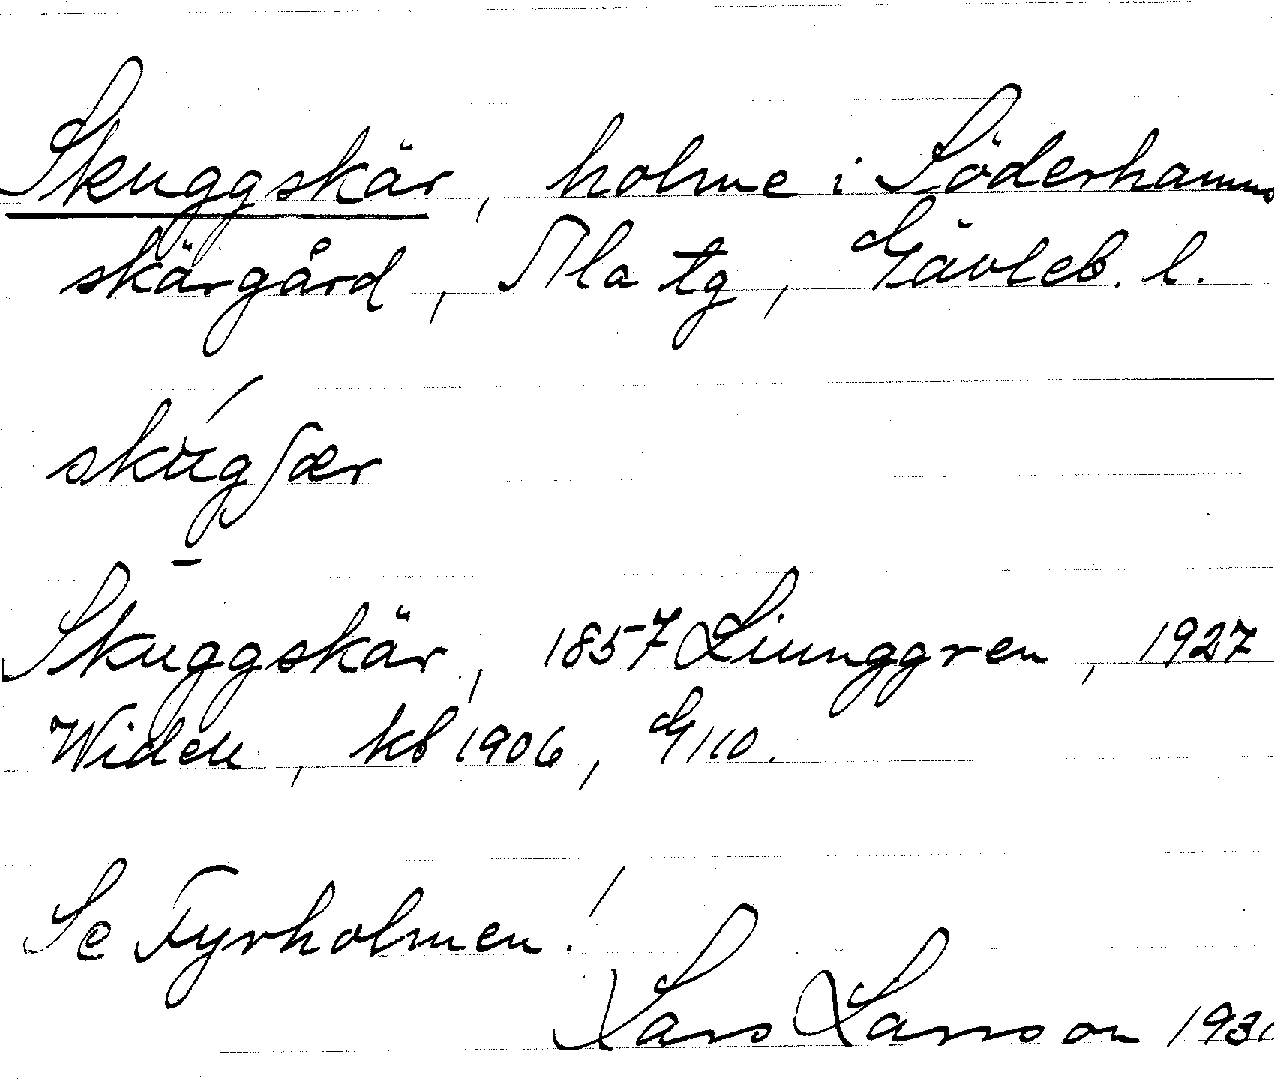 Skuggskär, holme i Söderhamns
skärgård, Ala tg, Gävleb. l.
skúgʃær
Skuggskär, 1857 Ljunggren, 1927
Widen, kb 1906, G110.
Se Fyrholmen!
Lars Larsson